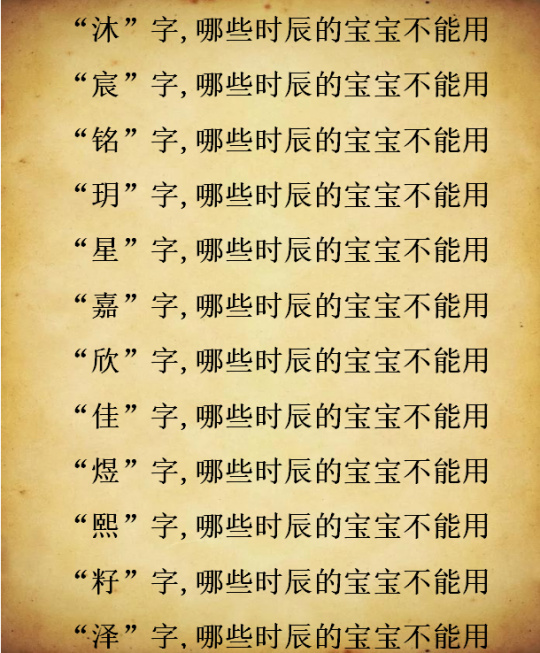 “沐”字,哪些时辰的宝宝不能用
“宸”字,哪些时辰的宝宝不能用
“铭”字,哪些时辰的宝宝不能用
“玥”字,哪些时辰的宝宝不能用
“星”字,哪些时辰的宝宝不能用
“嘉”字,哪些时辰的宝宝不能用
“欣”字,哪些时辰的宝宝不能用
“佳”字,哪些时辰的宝宝不能用
“煜”字,哪些时辰的宝宝不能用
“熙”字,哪些时辰的宝宝不能用
“籽”字,哪些时辰的宝宝不能用
“泽”字,哪些时辰的宝宝不能用